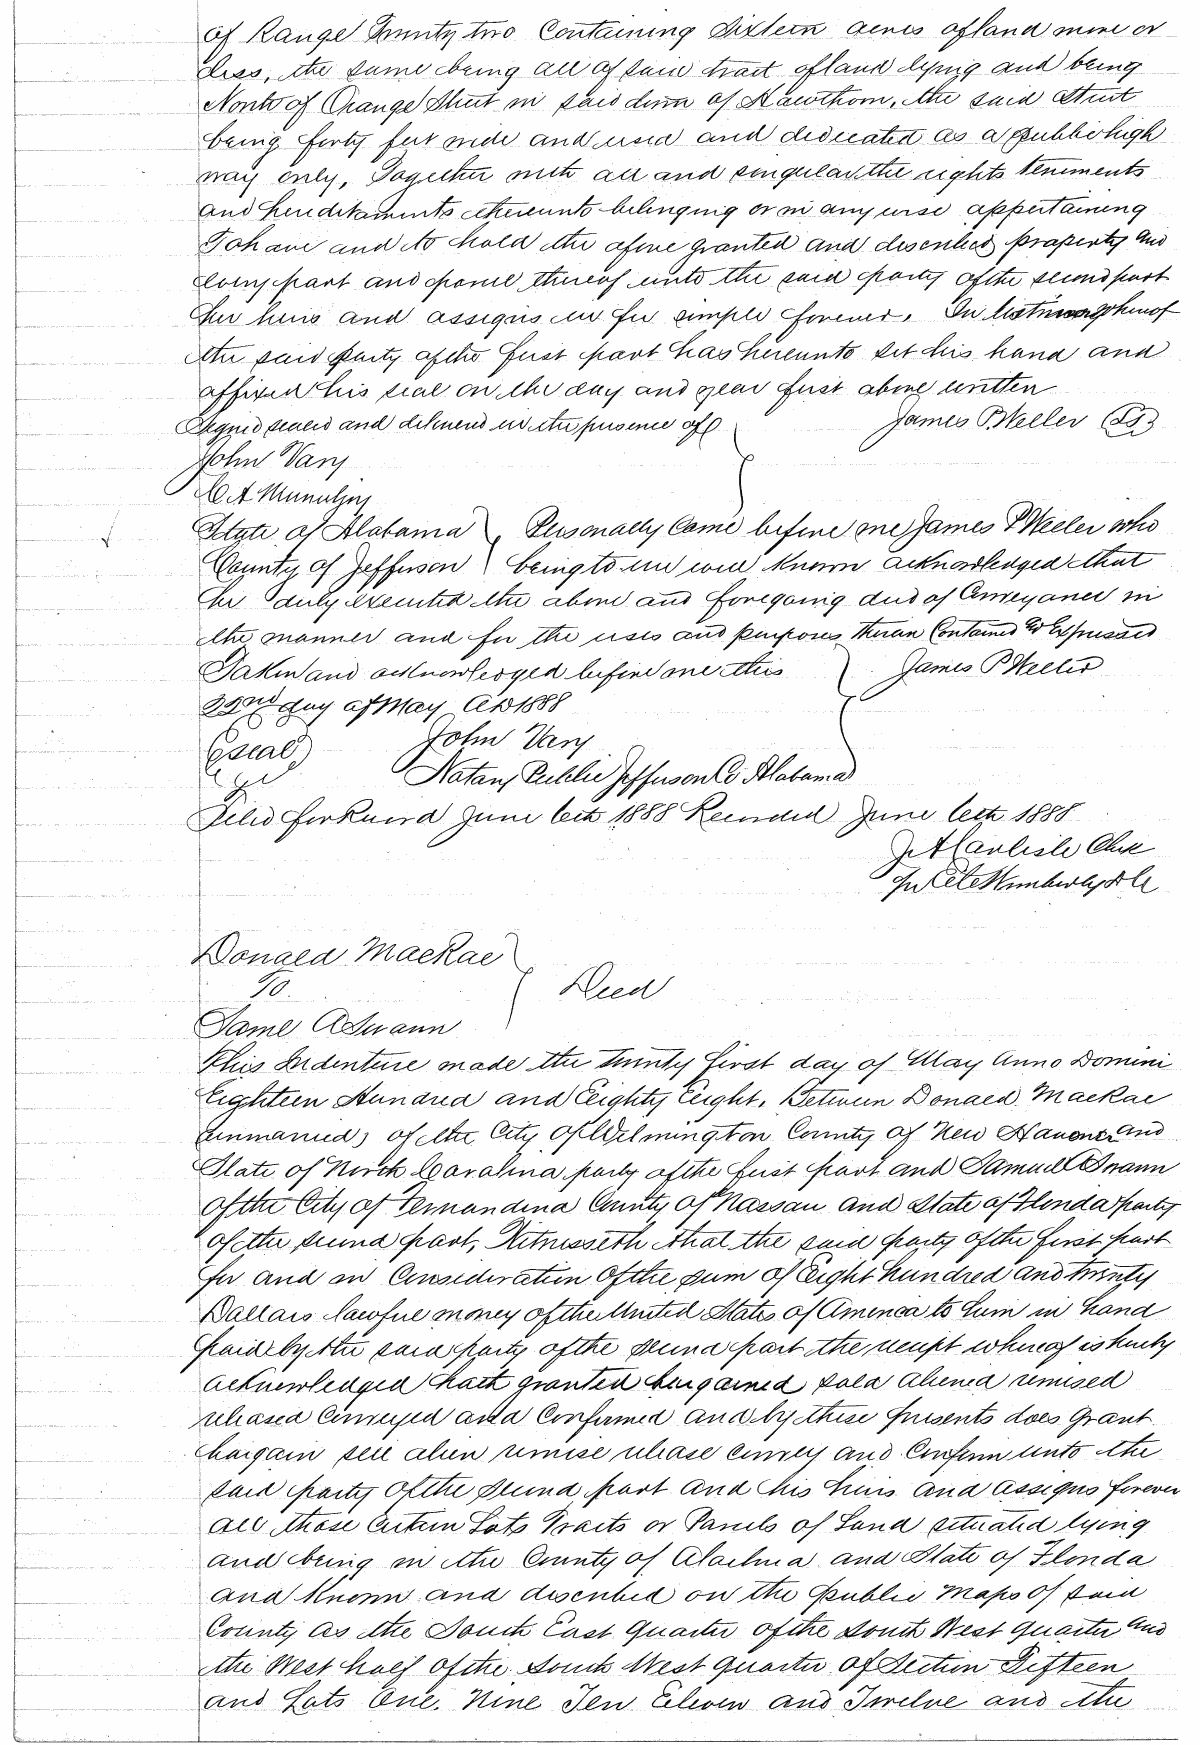 of Range Twenty two Containing Sixteen acres of land more or
less, the same being all of said tract of land lying and being
North of Orange Street in said town of Hawthorn, the said Street
being forty feet wide and used and dedicated as a public high
way only, Together with all and singular the rights tenements
and hereditaments thereunto belonging or in any wise appertaining
To have and to hold the afore granted and described property and
every part and parcel thereof unto the said party of the second part
her heirs and assigns in fee simple forever. In testimony whereof
the said party of the first part has hereunto set his hand and
affixed his seal on the day and year first above written
Signed sealed and delivered in the presence of James P. Weller (LS)
John Vary
State of Alabama Personally Came before me James P Weller who
County of Jefferson being to me well Known acknowledged that
he duly executed the above and foregoing deed of Conveyance in
the manner and for the uses and purposes therein Contained & Expressed
Taken and acknowledged before me this James P Weller
22nd day of May AD 1888
(Seal) John Vary
Notary Public Jefferson Co Alabama
Filed for Record June 6th 1888 Recorded June 6th 1888
J A Carlisle Clk
Donald MacRae
To Deed
Saml A Swann
This Indenture made the twenty first day of May Anno Domini
Eighteen Hundred and Eighty Eight. Between Donald MacRae
(unmarried) of the City of Wilmington County of New Hanover and
State of North Carolina party of the first part and Samuel A Swann
of the City of Fernandina County of Nassau and State of Florida party
of the second part, Witnesseth that the said party of the first part
for and in Consideration of the sum of Eight hundred and twenty
Dollars lawful money of the United States of America to him in hand
paid by the said party of the second part the receipt whereof is hereby
acknowledged hath granted bargained sold aliened remised
released Conveyed and Confirmed and by these presents does Grant
bargain sell alien remise release convey and Confirm unto the
said party of the second part and his heirs and assigns forever
all those certain Lots Tracts or Parcels of Land situated lying
and being in the County of Alachua and State of Florida
and Known and described on the public maps of said
County as the South East Quarter of the South West Quarter and
the West half of the South West quarter of Section Fifteen
and Lots One. Nine Ten Eleven and Twelve and the